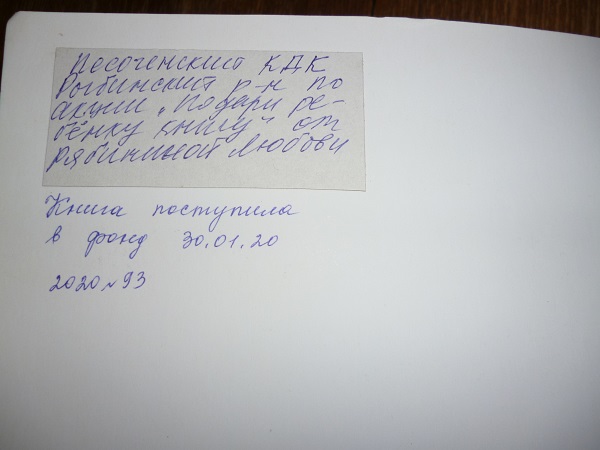 Песоченский КДК
Рыбинский р-н по
акции „Подари ре-
бёнку книгу" от
Рябининой Любови
Книга поступила
в фонд 30.01.20
2020 № 93